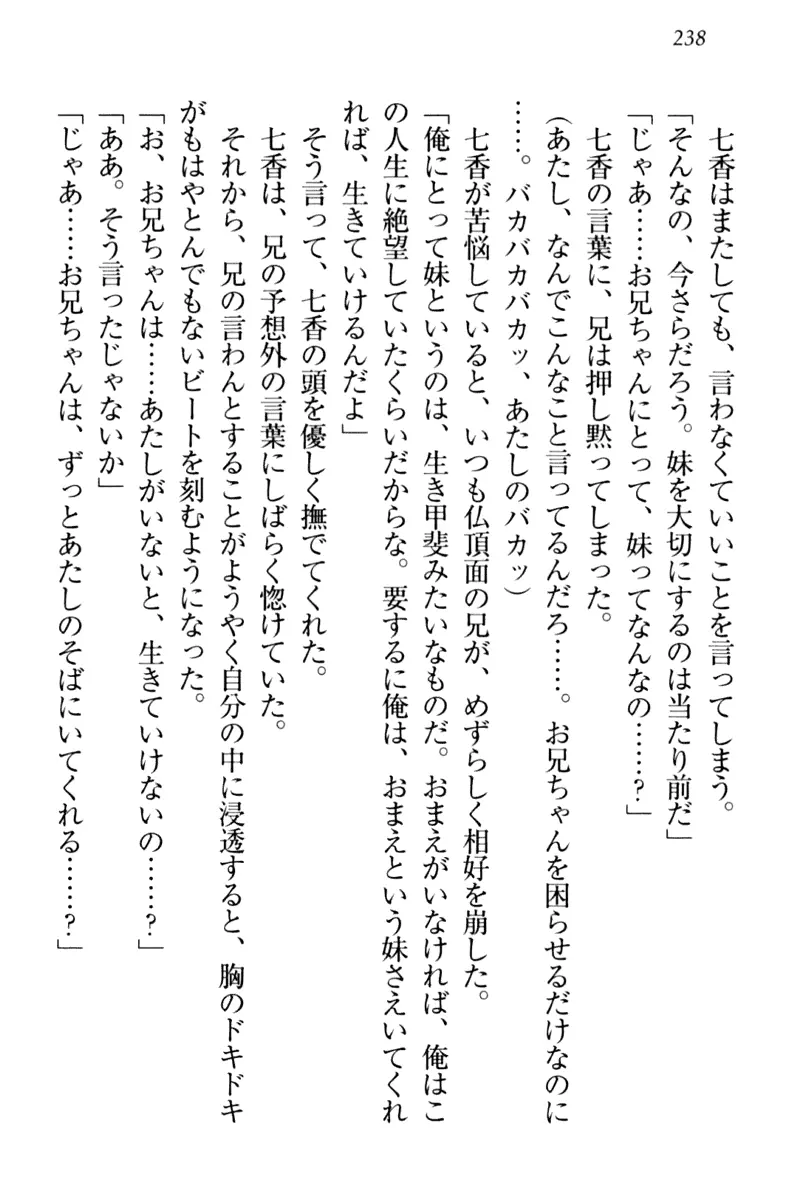 238
七香はまたしても、言わなくていいことを言ってしまう。
「そんなの、今さらだろう。妹を大切にするのは当たり前だ」
「じゃあ……お兄ちゃんにとって、妹ってなんなの……？」
七香の言葉に、兄は押し黙ってしまった。
(あたし、なんでこんなこと言ってるんだろ……。お兄ちゃんを困らせるだけなのに
……。バカバカバカッ、あたしのバカッ)
七香が苦悩していると、いつも仏頂面の兄が、めずらしく相好を崩した。
「俺にとって妹というのは、生き甲斐みたいなものだ。おまえがいなければ、俺はこ
の人生に絶望していたくらいだからな。要するに俺は、おまえという妹さえいてくれ
れば、生きていけるんだよ」
そう言って、七香の頭を優しく撫でてくれた。
七香は、兄の予想外の言葉にしばらく惚けていた。
それから、兄の言わんとすることがようやく自分の中に浸透すると、胸のドキドキ
がもはやとんでもないビートを刻むようになった。
「お、お兄ちゃんは……あたしがいないと、生きていけないの……？」
「ああ。そう言ったじゃないか」
「じゃあ……お兄ちゃんは、ずっとあたしのそばにいてくれる……？」